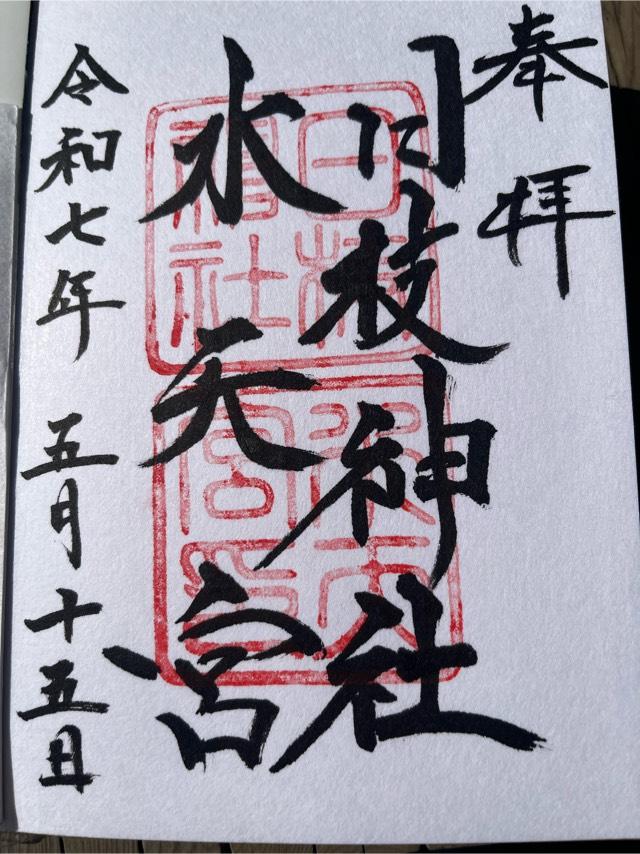 奉拝
日枝神社
水天宮
令和七年 五月十五日